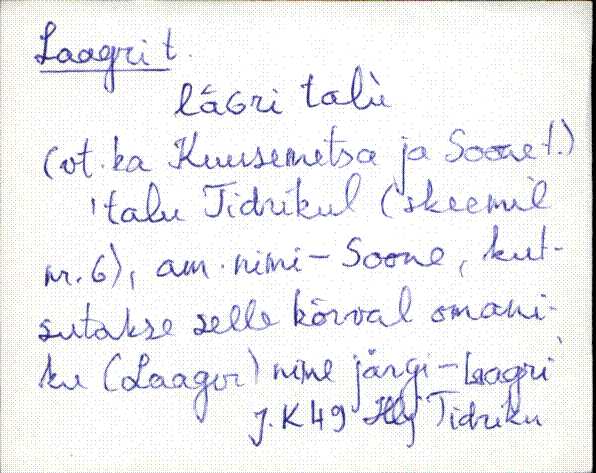 Laagri t.
lāGri talù
(vt. ka Kuusemetsa ja Soone t.)
'talu Tidrikul (skeemil
nr. 6), am. nimi - Soone, kut-
sutakse selle kõrval omani-
ku (Laager) nime järgi - Laagri
J. K 49 Tidriku